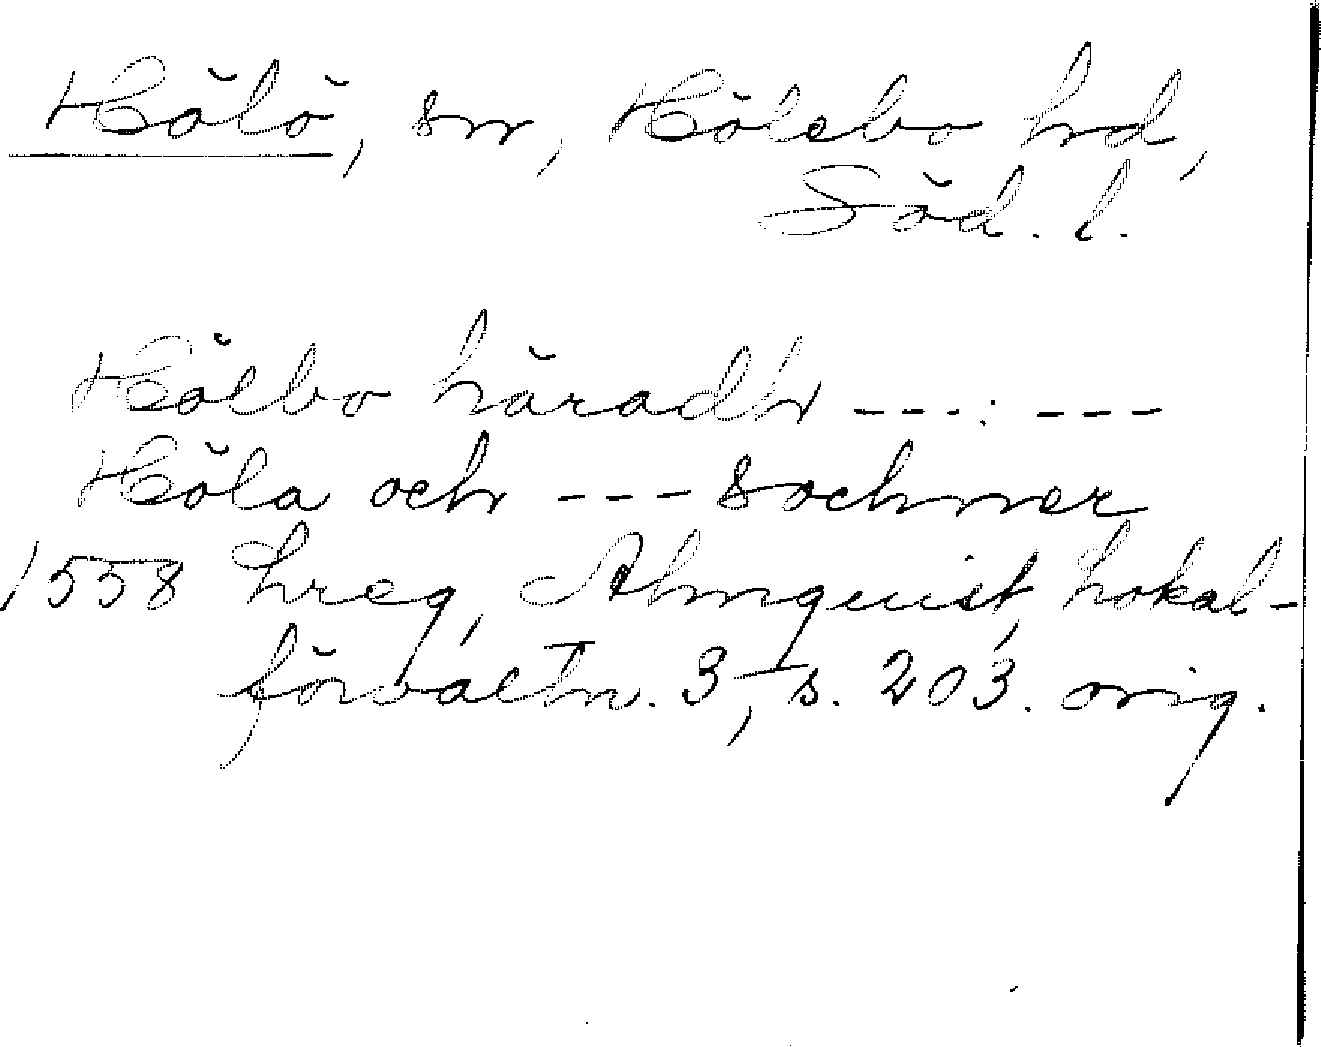 Hölö, sn, Hölebo hd,
Söd. l.
Hölbo häradh ---: ---
Höla och --- sochner
1558 Lreg, Almquist, Lokal-
förvaltn. 3, s. 203. orig.